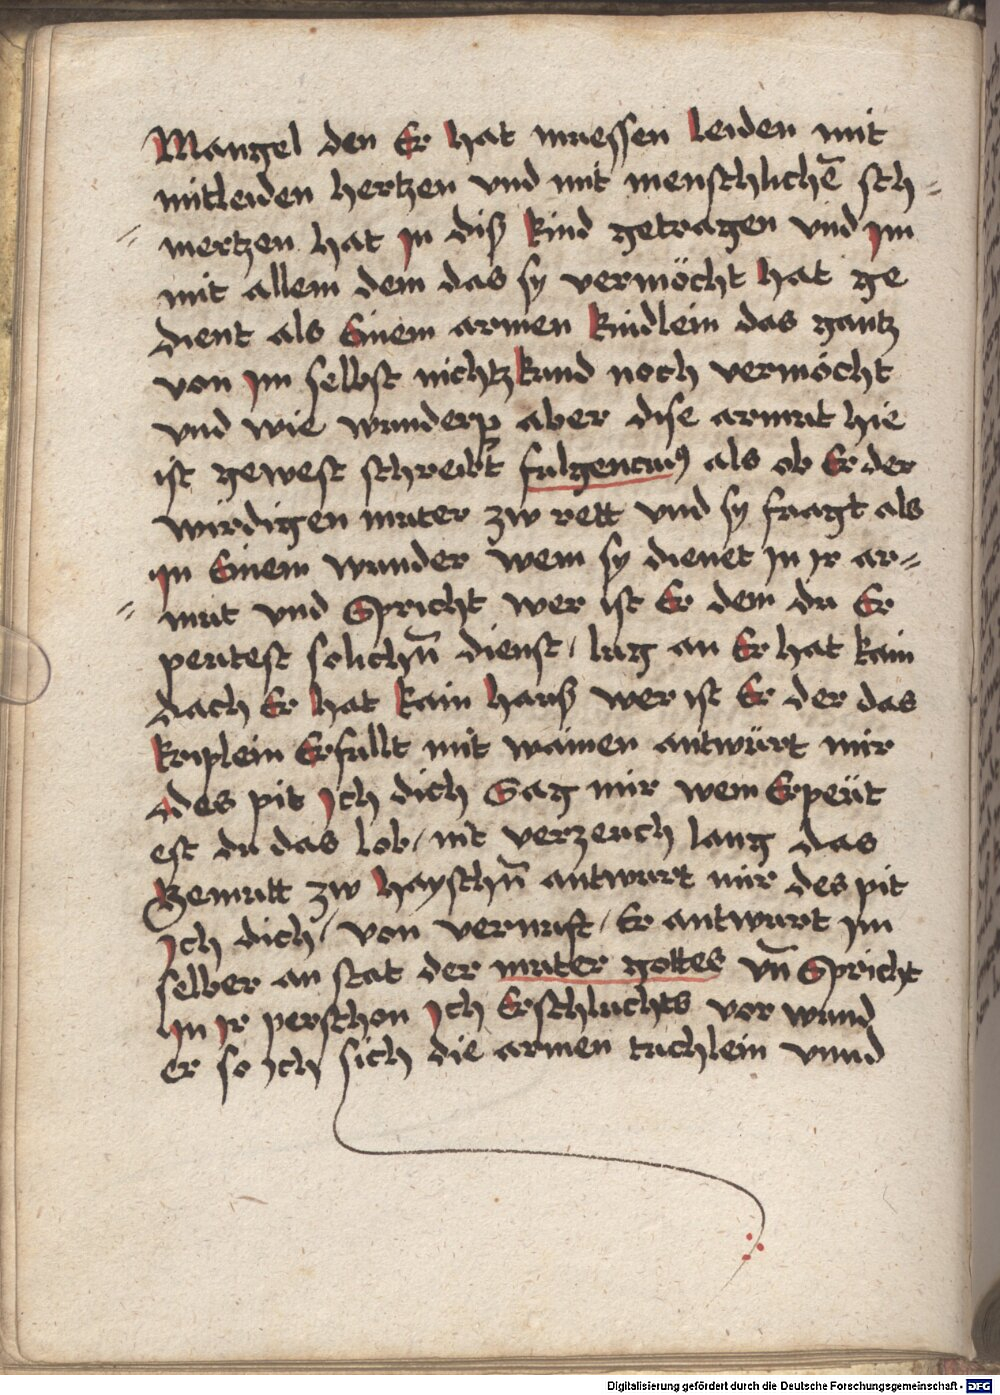 Mangel den Er hat muessen leiden mit
mitleiden hertzen vnd mit menschlichē sch=
mertzen hat jn diß kind getragen vnd jm
mit allem dem das sy vermöcht hat ge
dient als Einem armen kindlein das gantz
von jm selbst nichtz kund noch vermöcht
vnd wie wunderp aber dise armut hie
ist gewest schreibt fulgencius als ob Er der
wirdigen muter zw rett vnd sy fragt als
jn Einem wunder wem sy dienet jn jr ar=
mut vnd Spricht wer ist Er dem du Er
peutest solichn̄ dienst / lug an Er hat kain
dach Er hat kain hauß wer ist Er der das
kriplein Erfullt mit wainen antwürt mir
des pit jch dich Sag mir wem Erpeüt
est du das lob / nit verzeuch lang das
gemütt zw hayschn̄ antwurt mir des pit
jch dich / von vernuft / Er antwurt jm
selber an stat der muter gottes vn̄ Spricht
jn jr perschon jch Erschluchts vor wund
er so jch sich die armen tuchlein vnnd
Digitalisierung gefördert durch die Deutsche Forschungsgemeinschaft - DFG